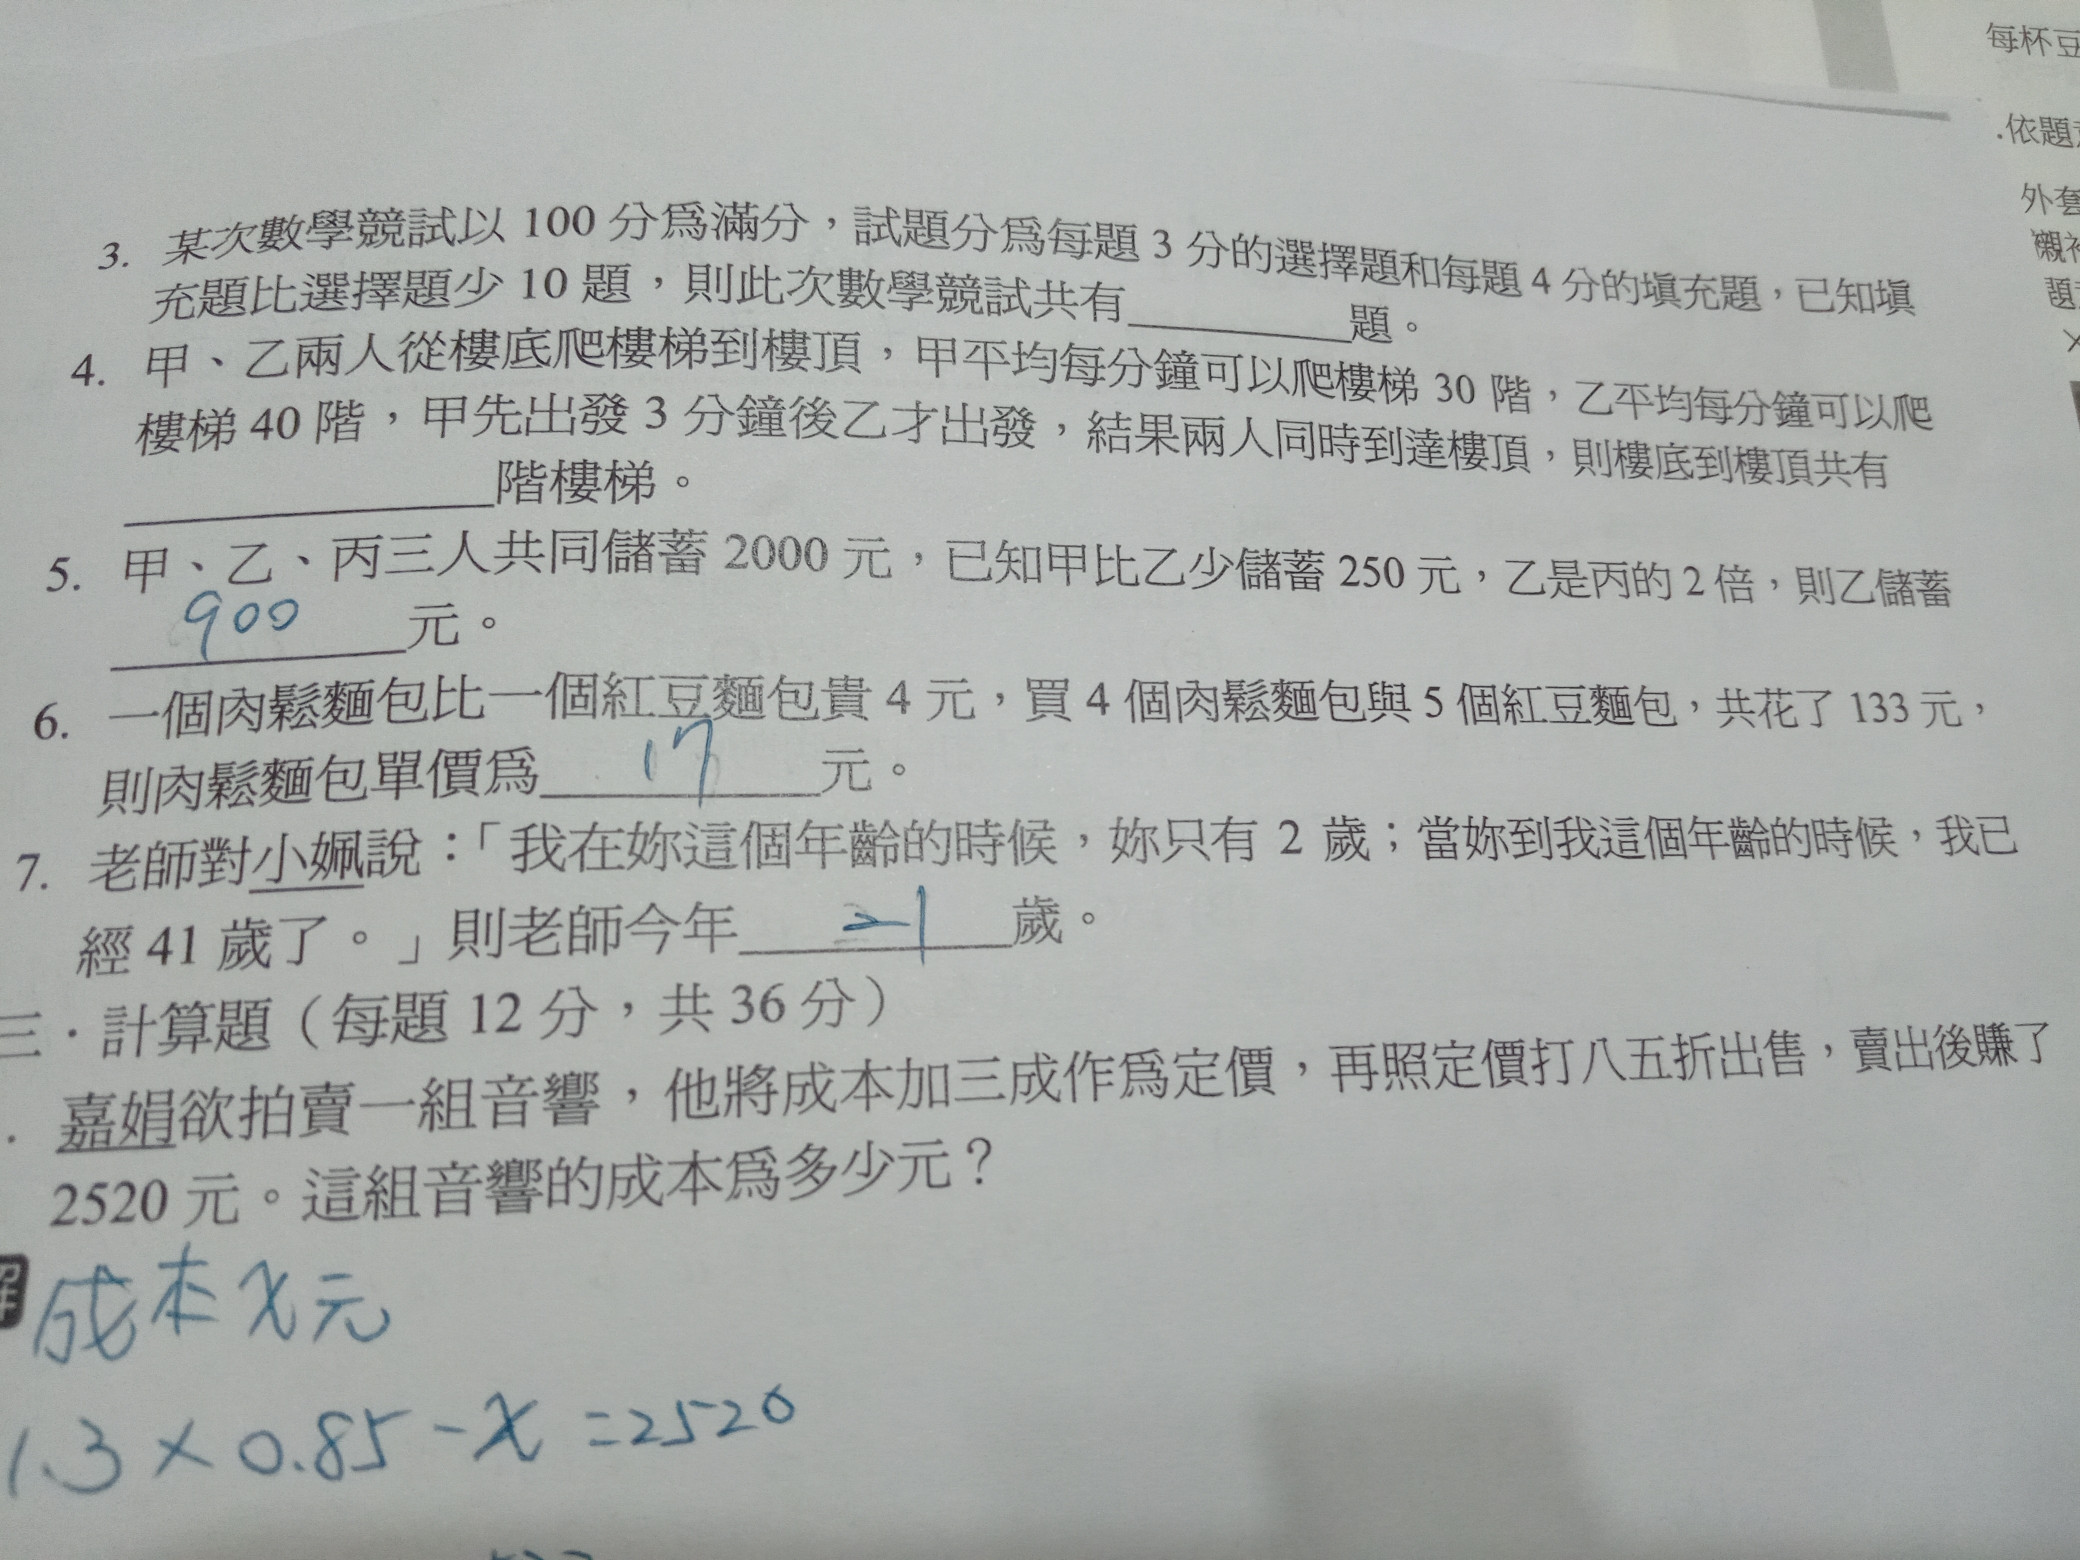 每杯豆
.依題
外套
襯
題
3. 某次數學競試以 100 分爲滿分，試題分爲每題 3 分的選擇題和每題 4 分的填充題，已知填
充題比選擇題少 10 題，則此次數學競試共有________題。
4. 甲、乙兩人從樓底爬樓梯到樓頂，甲平均每分鐘可以爬樓梯 30 階，乙平均每分鐘可以爬
樓梯 40 階，甲先出發 3 分鐘後乙才出發，結果兩人同時到達樓頂，則樓底到樓頂共有
________階樓梯。
5. 甲、乙、丙三人共同儲蓄 2000 元，已知甲比乙少儲蓄 250 元，乙是丙的 2 倍，則乙儲蓄
900 元。
6. 一個肉鬆麵包比一個紅豆麵包貴 4 元，買 4 個肉鬆麵包與 5 個紅豆麵包，共花了 133 元，
則肉鬆麵包單價爲 17 元。
7. 老師對小姵說：「我在妳這個年齡的時候，妳只有 2 歲；當妳到我這個年齡的時候，我已
經 41 歲了。」則老師今年 21 歲。
三．計算題（每題 12 分，共 36 分）
. 嘉娟欲拍賣一組音響，他將成本加三成作爲定價，再照定價打八五折出售，賣出後賺了
2520 元。這組音響的成本爲多少元？
解 成本x元
1.3×0.85-x=2520